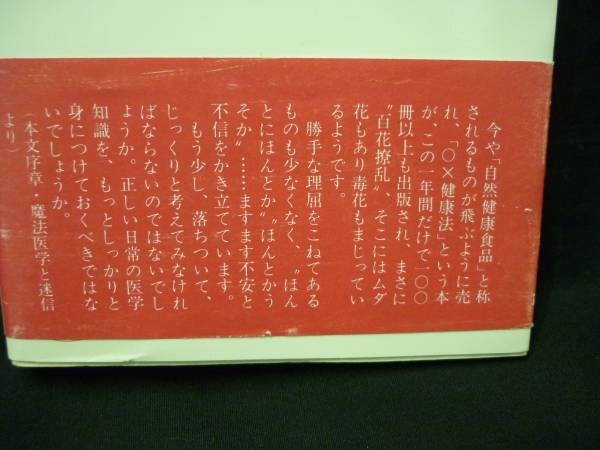 今や「自然健康食品」と称
されるものが飛ぶように売
れ、「〇×健康法」という本
が、この一年間だけで一〇〇
冊以上も出版され、まさに
〝百花撩乱〟、そこにはムダ
花もあり毒花もまじってい
るようです。
勝手な理屈をこねてある
ものも少なくなく、〝ほん
とにほんとか〟〝ほんとかう
そか〟……ますます不安と
不信をかき立てています。
もう少し、落ちついて、
じっくりと考えてみなけれ
ばならないのではないでし
ょうか。正しい日常の医学
知識を、もっとしっかりと
身につけておくべきではな
いでしょうか。
（本文序章・魔法医学と迷信
より）